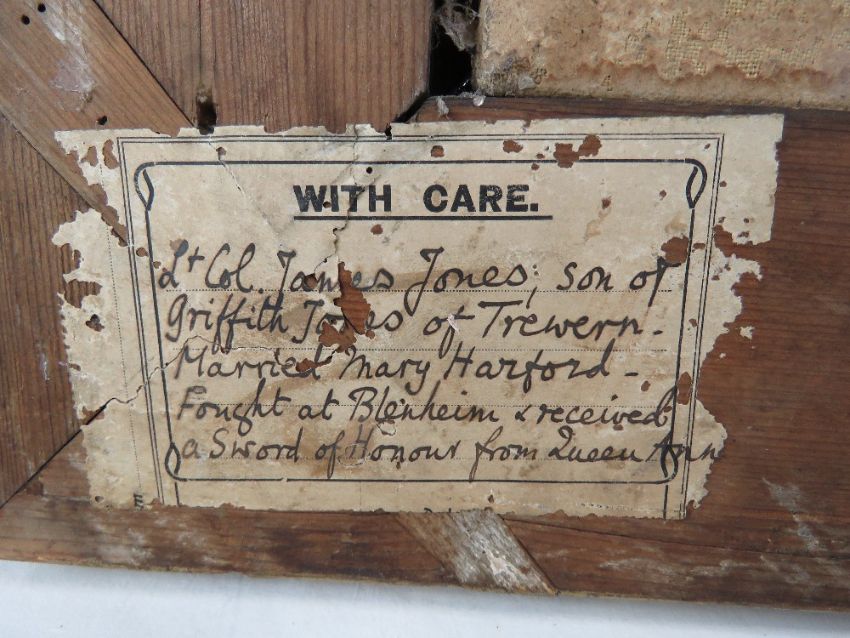 WITH CARE.
Lt Col. James Jones, son of
Griffith Jones of Trewern -
Married Mary Harford -
Fought at Blenheim & received
a Sword of Honour from Queen Ann